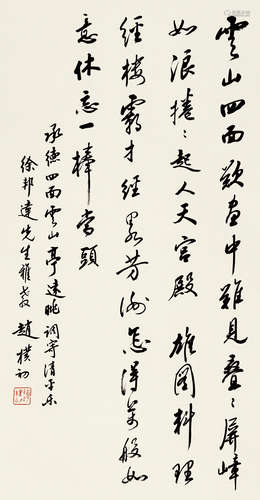 雲山四面歎畫中難見疊〻屏峰
如浪捲〻起人天宮殿 雄圖料理
經樓霸才經略芳洲怎得萬般如
意休忘一棒當頭
承德四面雲山亭遠眺 調寄清平樂
徐邦達先生雅教 趙樸初